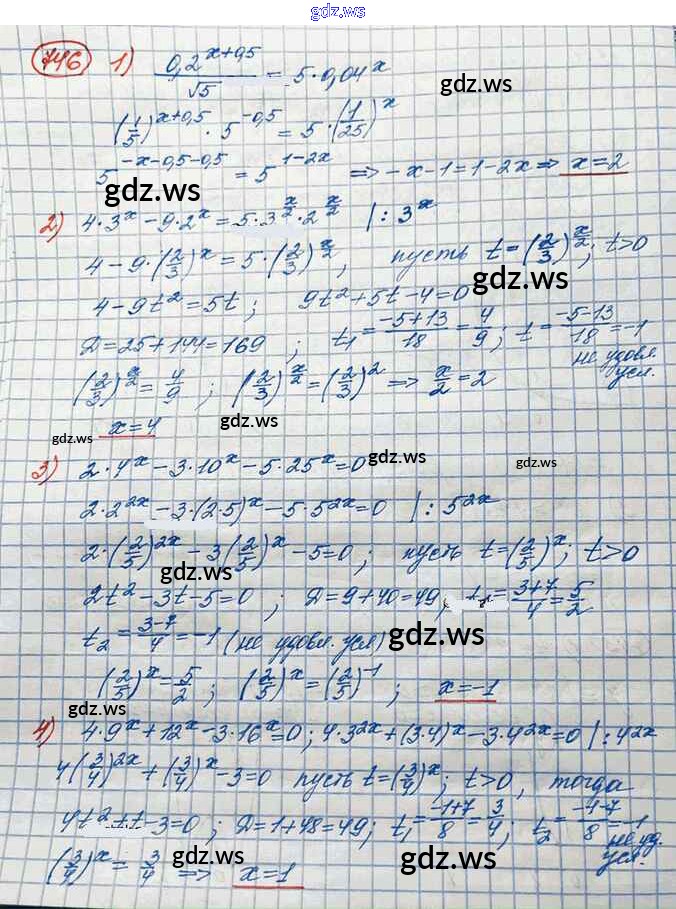 gdz.ws
746 1) 0,2^(x+0,5)/√5 = 5·0,04^x
gdz.ws
(1/5)^(x+0,5) · 5^(-0,5) = 5·(1/25)^x
5^(-x-0,5-0,5) = 5^(1-2x) => -x-1=1-2x => x=2
gdz.ws
2) 4·3^x - 9·2^x = 5·3^(x/2)·2^(x/2) |: 3^x
4-9·(2/3)^x = 5·(2/3)^(x/2), пусть t=(2/3)^(x/2); t>0
gdz.ws
4-9t^2=5t; 9t^2+5t-4=0
D=25+144=169; t₁=(-5+13)/18=4/9; t=(-5-13)/18=-1
не удовл. усл.
(2/3)^(x/2)=4/9; (2/3)^(x/2)=(2/3)^2 => x/2=2
x=4
gdz.ws gdz.ws
3) 2·4^x-3·10^x-5·25^x=0
gdz.ws gdz.ws
2·2^(2x)-3·(2·5)^x-5·5^(2x)=0 |: 5^(2x)
2·(2/5)^(2x)-3(2/5)^x-5=0; пусть t=(2/5)^x; t>0
gdz.ws
2t^2-3t-5=0; D=9+40=49, t₁=(3+7)/4=5/2
t₂=(3-7)/4=-1 (не удовл. усл)
gdz.ws
(2/5)^x=5/2; (2/5)^x=(2/5)^(-1); x=-1
gdz.ws
4) 4·9^x+12^x-3·16^x=0; 4·3^(2x)+(3·4)^x-3·4^(2x)=0 |: 4^(2x)
4(3/4)^(2x)+(3/4)^x-3=0 пусть t=(3/4)^x; t>0, тогда
4t^2+t-3=0; D=1+48=49; t₁=(-1+7)/8=3/4; t₂=(-1-7)/8=-1
не уд. усл.
gdz.ws gdz.ws
(3/4)^x=3/4 => x=1